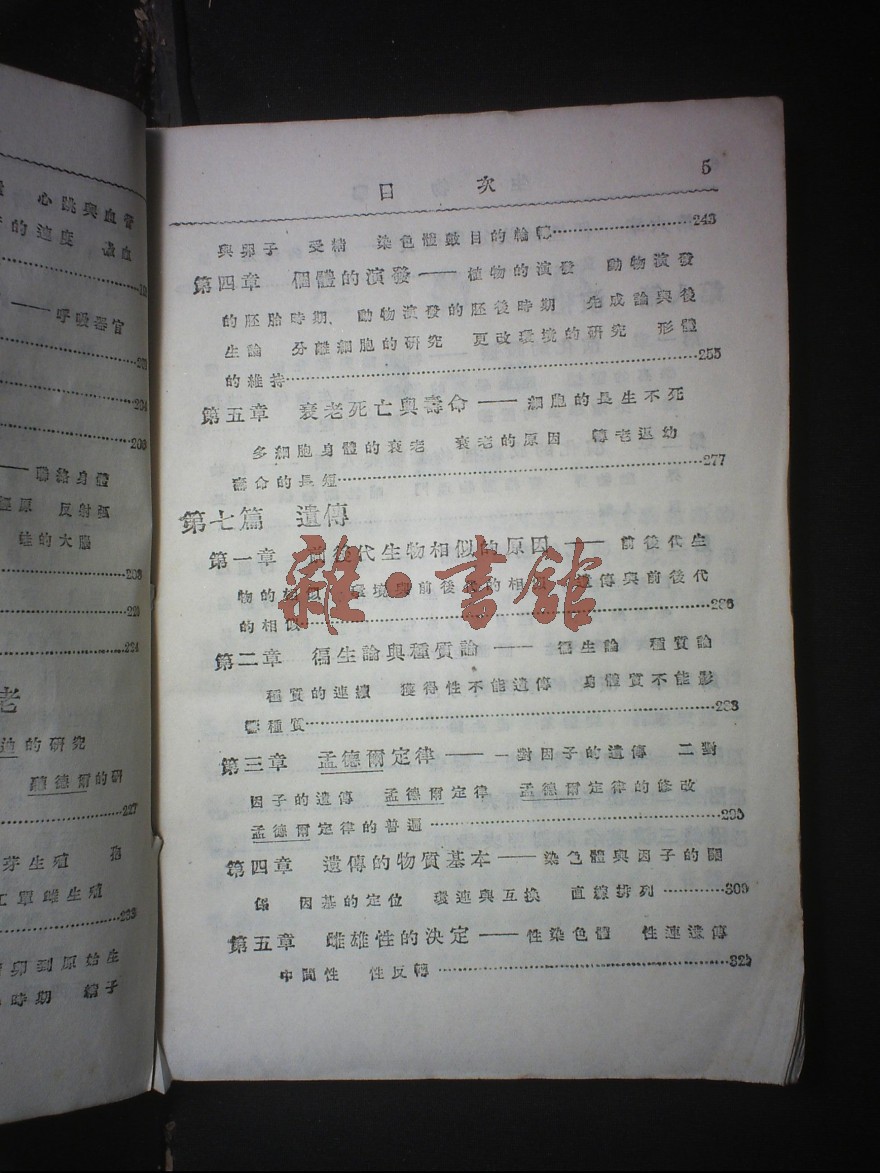 心跳與血管
的速度
呼吸器官
聯絡身體
反射弧
蛙的大腦
的研究
德爾的研
227
芽生殖
單雌生殖
卵到原始生
時期
目 次 5
與卵子 受精 染色體數目的輪轉 243
第四章 個體的演發——植物的演發 動物演發
的胚胎時期 動物演發的胚後時期 先成論與後
生論 分離細胞的研究 更改環境的研究 形體
的維持 255
第五章 衰老死亡與壽命——細胞的長生不死
多細胞身體的衰老 衰老的原因 轉老返幼
壽命的長短 277
第七篇 遺傳
第一章 前後代生物相似的原因——前後代生
物的相似 環境與前後代的相似 遺傳與前後代
的相似
第二章 生論與種質論——生論 種質論
種質的連續 獲得性不能遺傳 身體質不能影
響種質
第三章 孟德爾定律——一對因子的遺傳 二對
因子的遺傳 孟德爾定律 孟德爾定律的修改
孟德爾定律的普遍 295
第四章 遺傳的物質基本——染色體與因子的關
係 因基的定位 環連與互換 直線排列 309
第五章 雌雄性的決定——性染色體 性連遺傳
中間性 性反轉
雜·書館